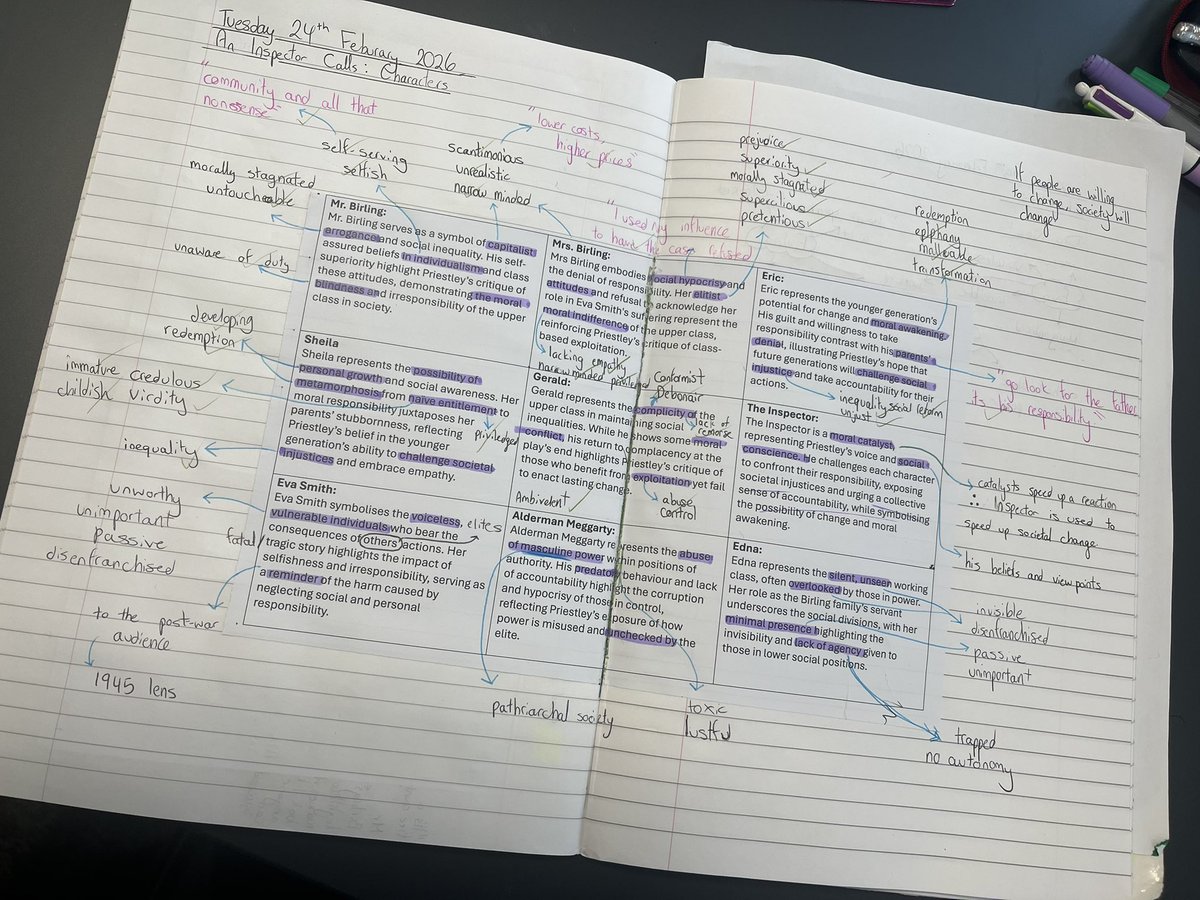 Tuesday 24th Feburary 2026
An Inspector Calls: Characters
"community and all that
nonesense"
self-serving
selfish
morally stagnated
untoucheable
unaware of duty
developing
redemption
immature credulous
childish virdity
inequality
unworthy
unimportant
passive
disenfranchised
fatal
to the post-war
audience
1945 lens
scantimonious
unrealistic
narrow minded
"lower costs,
higher prices"
"I used my influence
to have the case refused
prejudice
superiority
morally stagnated
supercilious
pretentious
redemption
epiphany
malleable
transformation
If people are willing
to change, society will
change
Mr. Birling:
Mr. Birling serves as a symbol of capitalist
arrogance and social inequality. His self-
assured beliefs in individualism and class
superiority highlight Priestley's critique of
these attitudes, demonstrating the moral
blindness and irresponsibility of the upper
class in society.
Mrs. Birling:
Mrs Birling embodies social hypocrisy and
the denial of responsibility. Her elitist
attitudes and refusal to acknowledge her
role in Eva Smith's suffering represent the
moral indifference of the upper class,
reinforcing Priestley's critique of class-
based exploitation.
lacking empathy
narrow minded privileged
Eric:
Eric represents the younger generation's
potential for change and moral awakening.
His guilt and willingness to take
responsibility contrast with his parents'
denial, illustrating Priestley's hope that
future generations will challenge social
injustice and take accountability for their
actions.
inequality social reform
unjust
"go look for the father
its his responsibility"
Sheila
Sheila represents the possibility of
personal growth and social awareness. Her
metamorphosis from naive entitlement to
moral responsibility juxtaposes her
parents' stubbornness, reflecting
Priestley's belief in the younger
generation's ability to challenge societal
injustices and embrace empathy.
privileged
Gerald:
Gerald represents the complicity of the
upper class in maintaining social
inequalities. While he shows some moral
conflict, his return to complacency at the
play's end highlights Priestley's critique of
those who benefit from exploitation yet fail
to enact lasting change.
Conformist
Debonair
lack of
remorse
Ambivelent
abuse
control
The Inspector:
The Inspector is a moral catalyst,
representing Priestley's voice and social
conscience. He challenges each character
to confront their responsibility, exposing
societal injustices and urging a collective
sense of accountability, while symbolising
the possibility of change and moral
awakening.
catalysts speed up a reaction
∴ Inspector is used to
speed up societal change
his beliefs and viewpoints
Eva Smith:
Eva Smith symbolises the voiceless,
vulnerable individuals who bear the
consequences of others' actions. Her
tragic story highlights the impact of
selfishness and irresponsibility, serving as
a reminder of the harm caused by
neglecting social and personal
responsibility.
elites
Alderman Meggarty:
Alderman Meggarty represents the abuse
of masculine power within positions of
authority. His predatory behaviour and lack
of accountability highlight the corruption
and hypocrisy of those in control,
reflecting Priestley's exposure of how
power is misused and unchecked by the
elite.
pathriarchal society
toxic
lustful
Edna:
Edna represents the silent, unseen working
class, often overlooked by those in power.
Her role as the Birling family's servant
underscores the social divisions, with her
minimal presence highlighting the
invisibility and lack of agency given to
those in lower social positions.
invisible
disenfranchised
passive
unimportant
trapped
no autonomy